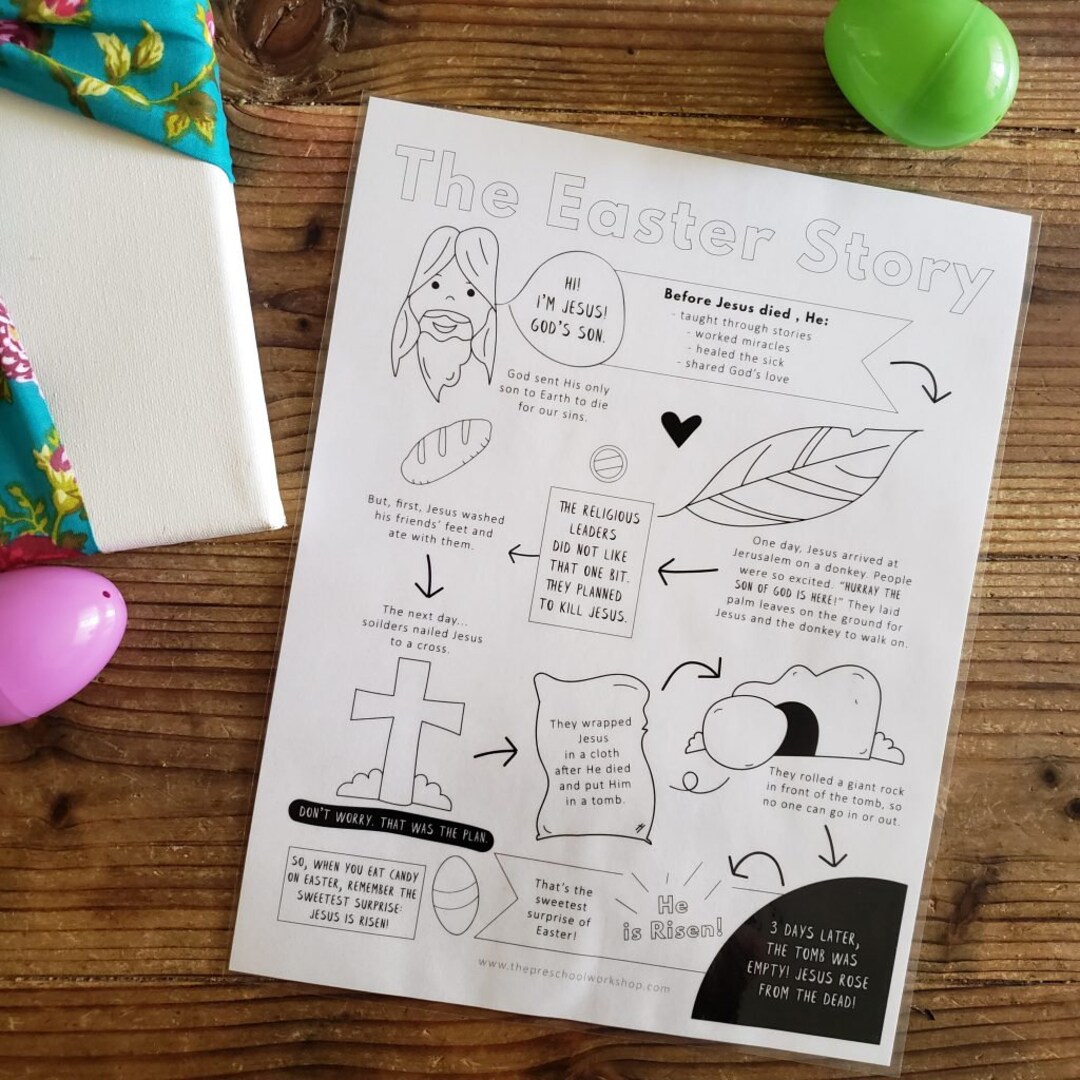 The Easter Story
HI!
I'M JESUS!
GOD'S SON.
God sent His only
son to Earth to die
for our sins.
Before Jesus died , He:
- taught through stories
- worked miracles
- healed the sick
- shared God's love
One day, Jesus arrived at
Jerusalem on a donkey. People
were so excited. "HURRAY THE
SON OF GOD IS HERE!" They laid
palm leaves on the ground for
Jesus and the donkey to walk on.
THE RELIGIOUS
LEADERS
DID NOT LIKE
THAT ONE BIT.
THEY PLANNED
TO KILL JESUS.
But, first, Jesus washed
his friends' feet and
ate with them.
The next day...
soilders nailed Jesus
to a cross.
DON'T WORRY. THAT WAS THE PLAN.
They wrapped
Jesus
in a cloth
after He died
and put Him
in a tomb.
They rolled a giant rock
in front of the tomb, so
no one can go in or out.
3 DAYS LATER,
THE TOMB WAS
EMPTY! JESUS ROSE
FROM THE DEAD!
He
is Risen!
That's the
sweetest
surprise of
Easter!
SO, WHEN YOU EAT CANDY
ON EASTER, REMEMBER THE
SWEETEST SURPRISE:
JESUS IS RISEN!
www.thepreschoolworkshop.com